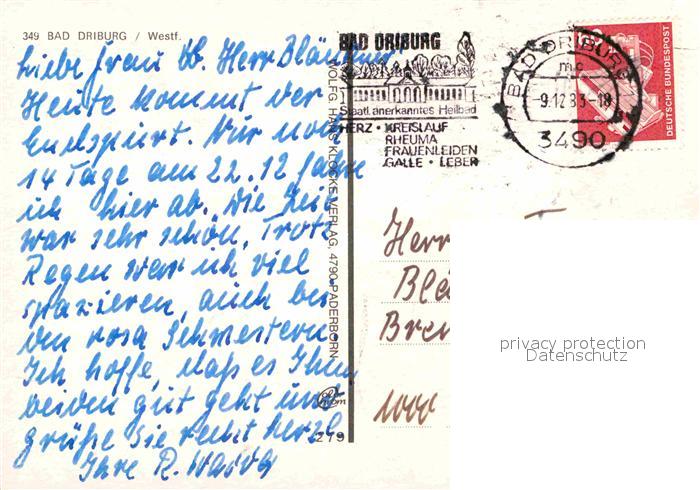 349 BAD DRIBURG / Westf.
Liebe Frau u. Herr Bläu
Heute kommt der
Endspurt. Nur noch
14 Tage am 22.12 fahre
ich hier ab. Die Zeit
war sehr schön, Trotz
Regen war ich viel
spazieren, auch bei
den rosa Schwestern.
Ich hoffe, dass es Ihnen
beiden gut geht und
grüße Sie recht herzl.
Ihre R.
WOLFG. HANS KLOCKE VERLAG, 4790 PADERBORN
279
BAD DRIBURG
Staatl. anerkanntes Heilbad
HERZ · KREISLAUF
RHEUMA
FRAUENLEIDEN
GALLE · LEBER
BAD DRIBURG
mc
-9.12.83-18
3490
DEUTSCHE BUNDESPOST
Herr
Blä
Bre
1000
privacy protection
Datenschutz